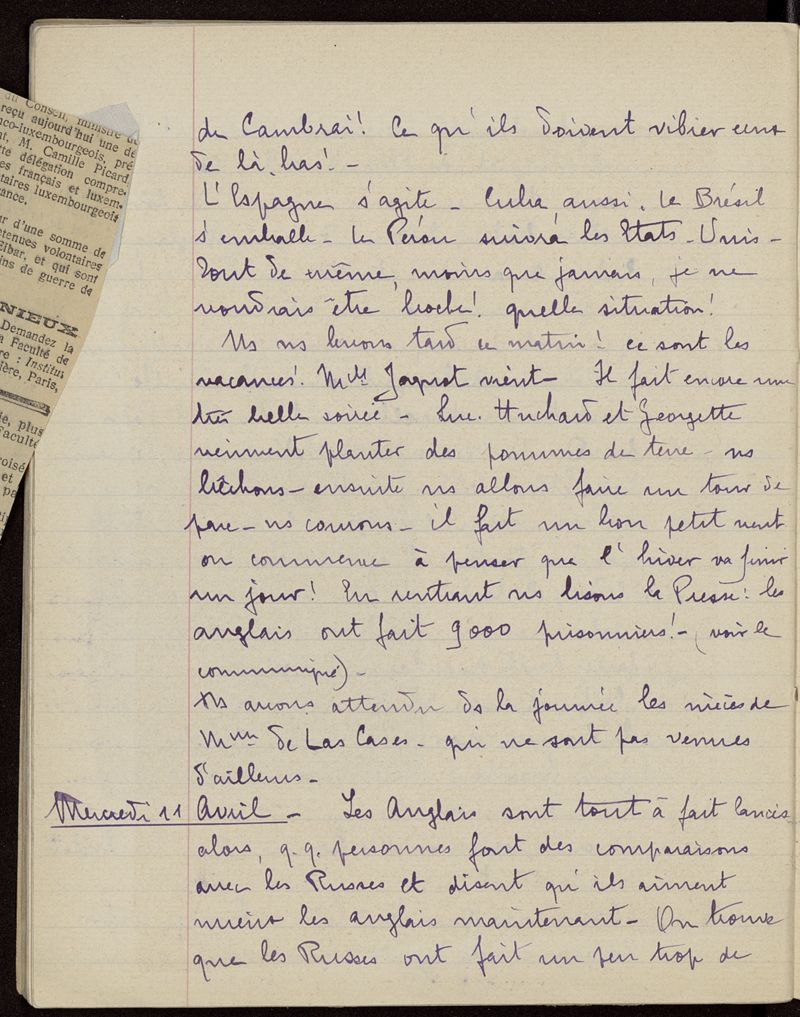 du Conseil, ministre de
reçu aujourd'hui une dé
nco-luxembourgeois, pré
nt, M. Camille Picard
tte délégation compre-
es français et luxem.
taires luxembourgeois
ance.
ur d'une somme de
etenues volontaires
Elbar, et qui sont
ins de guerre de
NIEUX
Demandez la
a Faculté de
re : Institut
ière, Paris,
ie, plus
Faculté
oisé
et
pa
de Cambrai! Ce qu'ils doivent vibrer eux
de là-bas! -
L'Espagne s'agite - Cuba aussi. Le Brésil
s'emballe - Le Pérou suivra les Etats-Unis -
Tout de même, moins que jamais, je ne
voudrais être boche! quelle situation!
Ns ns levons tard ce matin! ce sont les
vacances! Melle Jagnot vient - Il fait encore une
très belle soirée - Luc. Huchard et Georgette
viennent planter des pommes de terre - ns
bêchons - ensuite ns allons faire un tour de
parc - ns courons - il fait un bon petit vent
on commence à penser que l'hiver va finir
un jour! En rentrant ns lisons la Presse: les
anglais ont fait 9000 prisonniers! - (voir le
communiqué) -
Ns avons attendu ds la journée les nièces de
Mme de Las Cases - qui ne sont pas venues
d'ailleurs -
Mercredi 11 Avril - Les Anglais sont tout à fait lancés
alors, q.q. personnes font des comparaisons
avec les Russes et disent qu'ils aiment
mieux les anglais maintenant - On trouve
que les Russes ont fait un peu trop de